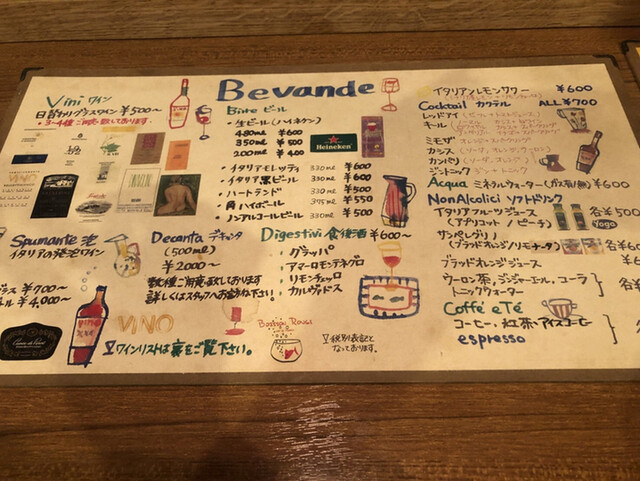 Bevande
Vini ワイン
日替わりグラスワイン ¥500~
・3~4種ご用意致しております。
VINO
Spumante 泡
イタリアの発泡ワイン
グラス ¥700~
ボトル ¥4,000~
Birre ビール
・生ビール(ハイネケン)
480ml ¥600
350ml ¥500
200ml ¥400
Heineken
・イタリア モレッティ 330ml ¥600
・イタリア黒ビール 330ml ¥650
・ハートランド 330ml ¥500
・角ハイボール 375ml ¥550
・ノンアルコールビール 330ml ¥500
Decanta デキャンタ
(500ml)
¥2000~
数種ご用意致しております
詳しくはスタッフへお訪ね下さい。
VINO
ワインリストは裏をご覧下さい。
Digestivi 食後酒 ¥600~
・グラッパ
・アマーロモンテネグロ
・リモンチェッロ
・カルヴァドス
税別表記と
なっております。
イタリアンレモンサワー ¥600
Cocktail カクテル ALL ¥700
レッドアイ
キール
ミモザ
カシス
カンパリ
ジントニック
Acqua ミネラルウォーター(ガス有/無) ¥600
NonAlcolici ソフトドリンク
イタリアフルーツジュース 各¥500
(アプリコット/ピーチ)
Yoga
サンペレグリノ
(ブラッドオレンジ/リモナータ) 各¥500
ブラッドオレンジジュース
ウーロン茶、ジンジャーエール、コーラ
トニックウォーター
Coffé e Té
コーヒー・紅茶・アイスコーヒー
espresso